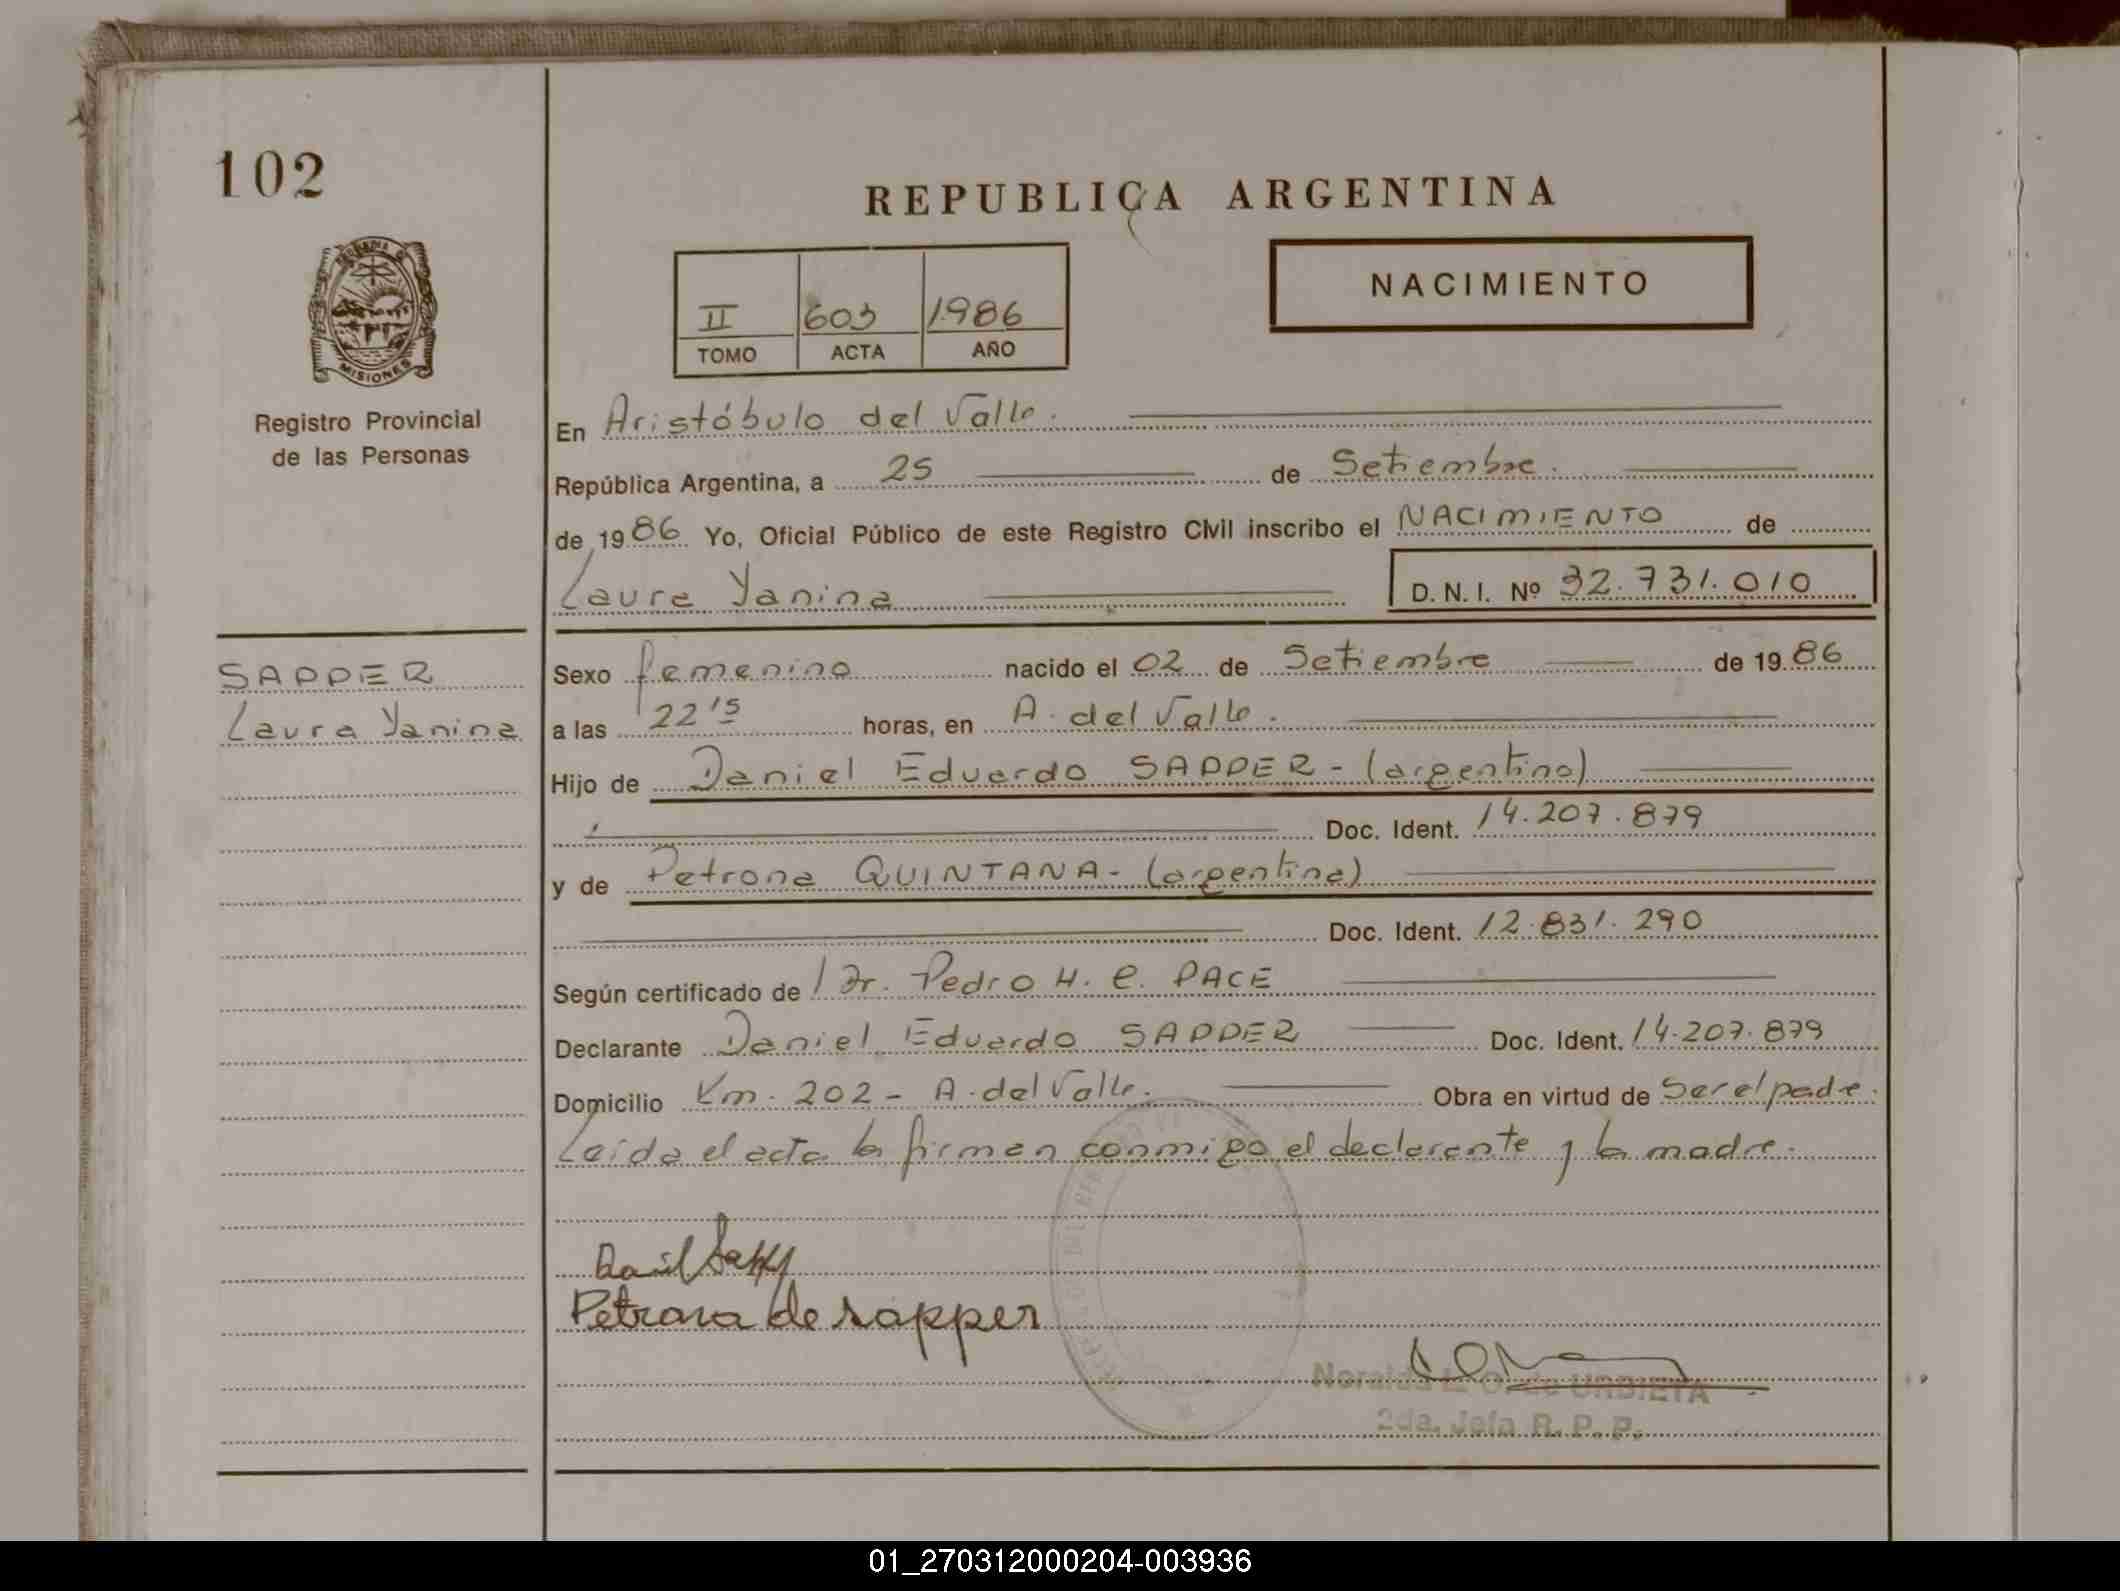 102
REPUBLICA ARGENTINA
NACIMIENTO
II 603 1986
TOMO ACTA AÑO
MISIONES
Registro Provincial
de las Personas
SAPPER
Laura Yanina
En Aristóbulo del Valle.
República Argentina, a 25 de Setiembre.
de 1986 Yo, Oficial Público de este Registro Civil inscribo el NACIMIENTO de
Laura Yanina D. N. I. Nº 32.731.010
Sexo femenino nacido el 02 de Setiembre de 1986
a las 22 15 horas, en A. del Valle.
Hijo de Daniel Eduardo SAPPER - (argentino)
Doc. Ident. 14.207.879
y de Petrona QUINTANA - (argentina)
Doc. Ident. 12.831.290
Según certificado de Dr. Pedro H. C. PACE
Declarante Daniel Eduardo SAPPER Doc. Ident. 14.207.879
Domicilio Km. 202 - A. del Valle. Obra en virtud de Ser el padre.
Leída el acta la firman conmigo el declarante y la madre.
Petrona de Sapper
Noraida L. O. de URBIETA
2da. Jefa R. P. P.
01_270312000204-003936